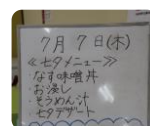 7月7日(木)
≪七夕メニュー≫
・なす味噌丼
・お浸し
・そうめん汁
・七夕デザート